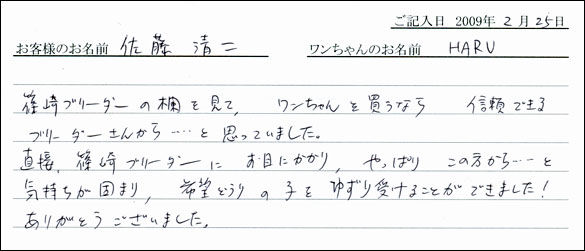 ご記入日 2009年 2月 25日
お客様のお名前 佐藤 清二 ワンちゃんのお名前 HARU
篠崎ブリーダーの欄を見て、ワンちゃんを買うなら 信頼できる
ブリーダーさんから……と思っていました。
直接、篠崎ブリーダーにお目にかかり、やっぱりこの方から……と
気持ちが固まり、希望どうりの子をゆずり受けることができました!
ありがとうございました。